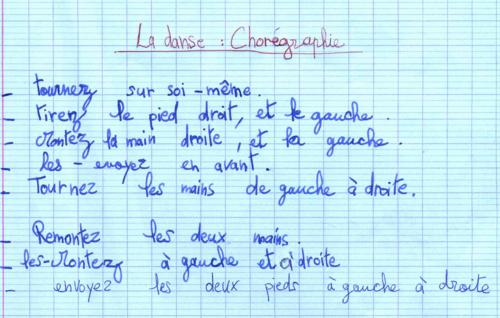 La danse : Chorégraphie
- tournez sur soi-même.
- tirez le pied droit, et le gauche.
- Montez la main droite, et la gauche.
- les-envoyez en avant.
- Tournez les mains de gauche à droite.
- Remontez les deux mains.
- les-Montez à gauche et à droite
- envoyez les deux pieds à gauche à droite